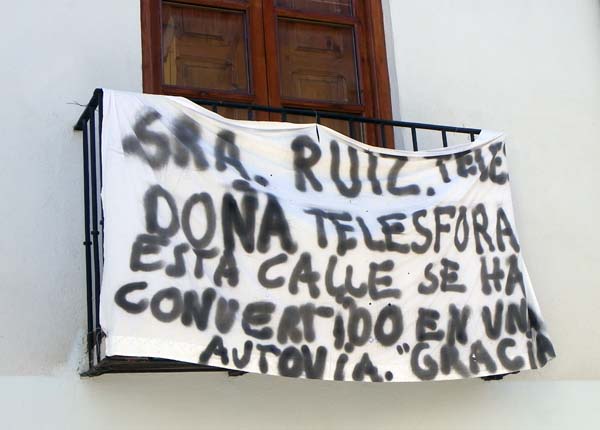 SRA. RUIZ. TELE
DOÑA TELESFORA
ESTA CALLE SE HA
CONVERTIDO EN UN
AUTOVÍA. "GRACIA